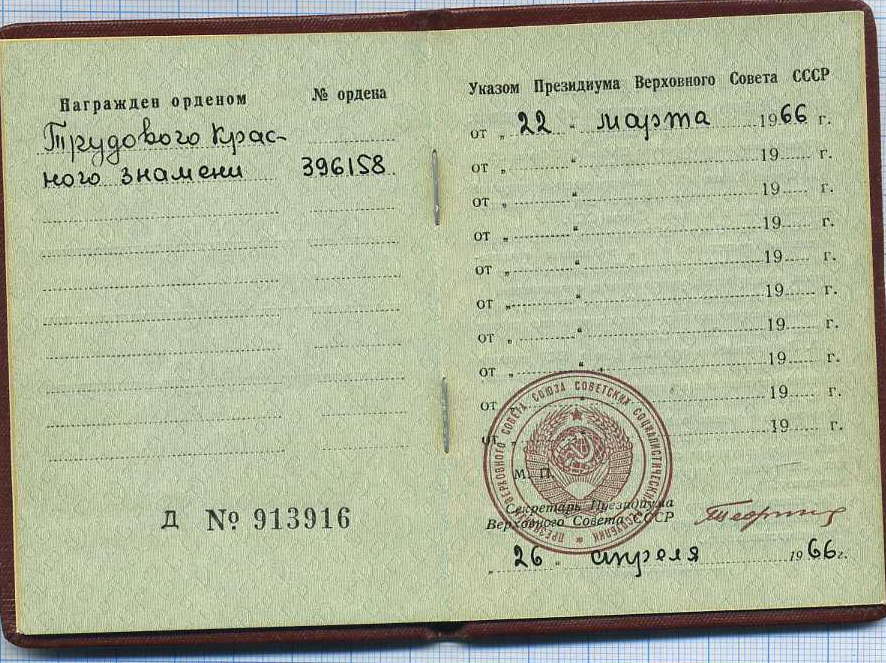 Награжден орденом № ордена
Трудового Крас-
ного знамени 396158
Д № 913916
Указом Президиума Верховного Совета СССР
от „ 22 “ марта 1966 г.
от „ “ 19 г.
от „ “ 19 г.
от „ “ 19 г.
от „ “ 19 г.
от „ “ 19 г.
от „ “ 19 г.
от „ “ 19 г.
от „ “ 19 г.
от „ “ 19 г.
ПРЕЗИДИУМ ВЕРХОВНОГО СОВЕТА СОЮЗА СОВЕТСКИХ СОЦИАЛИСТИЧЕСКИХ РЕСПУБЛИК
М. П.
Секретарь Президиума
Верховного Совета СССР
„ 26 “ апреля 1966 г.